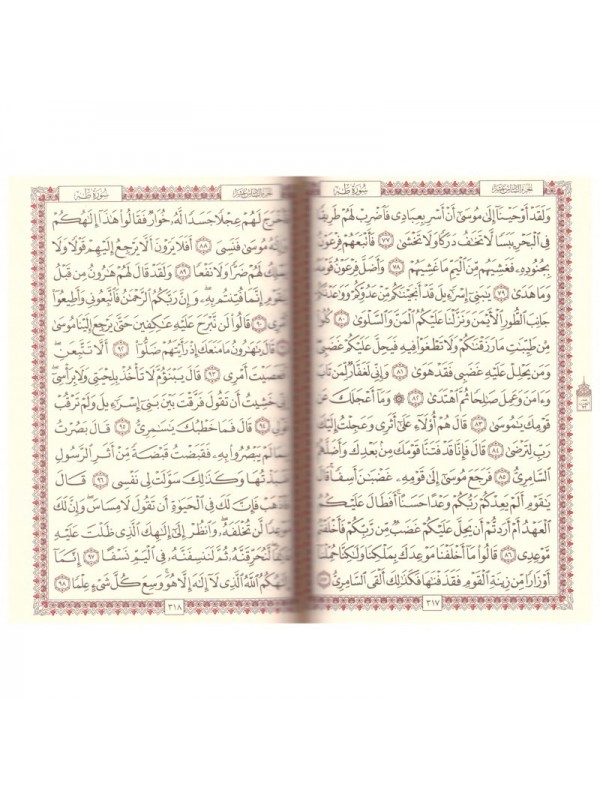 الجزء السادس عشر
سُورَةُ طه
وَلَقَدْ أَوْحَيْنَآ إِلَىٰ مُوسَىٰٓ أَنْ أَسْرِ بِعِبَادِى فَٱضْرِبْ لَهُمْ طَرِيقًا
فِى ٱلْبَحْرِ يَبَسًا لَّا تَخَٰفُ دَرَكًا وَلَا تَخْشَىٰ ٧٧ فَأَتْبَعَهُمْ فِرْعَوْنُ
بِجُنُودِهِۦ فَغَشِيَهُم مِّنَ ٱلْيَمِّ مَا غَشِيَهُمْ ٧٨ وَأَضَلَّ فِرْعَوْنُ قَوْمَهُۥ
وَمَا هَدَىٰ ٧٩ يَٰبَنِىٓ إِسْرَٰٓءِيلَ قَدْ أَنجَيْنَٰكُم مِّنْ عَدُوِّكُمْ وَوَٰعَدْنَٰكُمْ
جَانِبَ ٱلطُّورِ ٱلْأَيْمَنَ وَنَزَّلْنَا عَلَيْكُمُ ٱلْمَنَّ وَٱلسَّلْوَىٰ ٨٠ كُلُوا۟
مِن طَيِّبَٰتِ مَا رَزَقْنَٰكُمْ وَلَا تَطْغَوْا۟ فِيهِ فَيَحِلَّ عَلَيْكُمْ غَضَبِى
وَمَن يَحْلِلْ عَلَيْهِ غَضَبِى فَقَدْ هَوَىٰ ٨١ وَإِنِّى لَغَفَّارٌ لِّمَن تَابَ
وَءَامَنَ وَعَمِلَ صَٰلِحًا ثُمَّ ٱهْتَدَىٰ ٨٢ ۞ وَمَآ أَعْجَلَكَ عَن
قَوْمِكَ يَٰمُوسَىٰ ٨٣ قَالَ هُمْ أُو۟لَآءِ عَلَىٰٓ أَثَرِى وَعَجِلْتُ إِلَيْكَ
رَبِّ لِتَرْضَىٰ ٨٤ قَالَ فَإِنَّا قَدْ فَتَنَّا قَوْمَكَ مِنۢ بَعْدِكَ وَأَضَلَّهُمُ
ٱلسَّامِرِىُّ ٨٥ فَرَجَعَ مُوسَىٰٓ إِلَىٰ قَوْمِهِۦ غَضْبَٰنَ أَسِفًا قَالَ
يَٰقَوْمِ أَلَمْ يَعِدْكُمْ رَبُّكُمْ وَعْدًا حَسَنًا أَفَطَالَ عَلَيْكُمُ
ٱلْعَهْدُ أَمْ أَرَدتُّمْ أَن يَحِلَّ عَلَيْكُمْ غَضَبٌ مِّن رَّبِّكُمْ فَأَخْلَفْتُم
مَّوْعِدِى ٨٦ قَالُوا۟ مَآ أَخْلَفْنَا مَوْعِدَكَ بِمَلْكِنَا وَلَٰكِنَّا حُمِّلْنَآ
أَوْزَارًا مِّن زِينَةِ ٱلْقَوْمِ فَقَذَفْنَٰهَا فَكَذَٰلِكَ أَلْقَى ٱلسَّامِرِىُّ
٣١٧
الجزء السادس عشر
سُورَةُ طه
فَأَخْرَجَ لَهُمْ عِجْلًا جَسَدًا لَّهُۥ خُوَارٌ فَقَالُوا۟ هَٰذَآ إِلَٰهُكُمْ
وَإِلَٰهُ مُوسَىٰ فَنَسِىَ ٨٨ أَفَلَا يَرَوْنَ أَلَّا يَرْجِعُ إِلَيْهِمْ قَوْلًا وَلَا
يَمْلِكُ لَهُمْ ضَرًّا وَلَا نَفْعًا ٨٩ وَلَقَدْ قَالَ لَهُمْ هَٰرُونُ مِن قَبْلُ
يَٰقَوْمِ إِنَّمَا فُتِنتُم بِهِۦ وَإِنَّ رَبَّكُمُ ٱلرَّحْمَٰنُ فَٱتَّبِعُونِى وَأَطِيعُوٓا۟
أَمْرِى ٩٠ قَالُوا۟ لَن نَّبْرَحَ عَلَيْهِ عَٰكِفِينَ حَتَّىٰ يَرْجِعَ إِلَيْنَا مُوسَىٰ
قَالَ يَٰهَٰرُونُ مَا مَنَعَكَ إِذْ رَأَيْتَهُمْ ضَلُّوٓا۟ ٩٢ أَلَّا تَتَّبِعَنِ
أَفَعَصَيْتَ أَمْرِى ٩٣ قَالَ يَبْنَؤُمَّ لَا تَأْخُذْ بِلِحْيَتِى وَلَا بِرَأْسِىٓ
إِنِّى خَشِيتُ أَن تَقُولَ فَرَّقْتَ بَيْنَ بَنِىٓ إِسْرَٰٓءِيلَ وَلَمْ تَرْقُبْ
قَوْلِى ٩٤ قَالَ فَمَا خَطْبُكَ يَٰسَٰمِرِىُّ ٩٥ قَالَ بَصُرْتُ
بِمَا لَمْ يَبْصُرُوا۟ بِهِۦ فَقَبَضْتُ قَبْضَةً مِّنْ أَثَرِ ٱلرَّسُولِ
فَنَبَذْتُهَا وَكَذَٰلِكَ سَوَّلَتْ لِى نَفْسِى ٩٦ قَالَ
فَٱذْهَبْ فَإِنَّ لَكَ فِى ٱلْحَيَوٰةِ أَن تَقُولَ لَا مِسَاسَ وَإِنَّ لَكَ
مَوْعِدًا لَّن تُخْلَفَهُۥ وَٱنظُرْ إِلَىٰٓ إِلَٰهِكَ ٱلَّذِى ظَلْتَ عَلَيْهِ
عَاكِفًا لَّنُحَرِّقَنَّهُۥ ثُمَّ لَنَنسِفَنَّهُۥ فِى ٱلْيَمِّ نَسْفًا ٩٧ إِنَّمَآ
إِلَٰهُكُمُ ٱللَّهُ ٱلَّذِى لَآ إِلَٰهَ إِلَّا هُوَ وَسِعَ كُلَّ شَىْءٍ عِلْمًا ٩٨
٣١٨